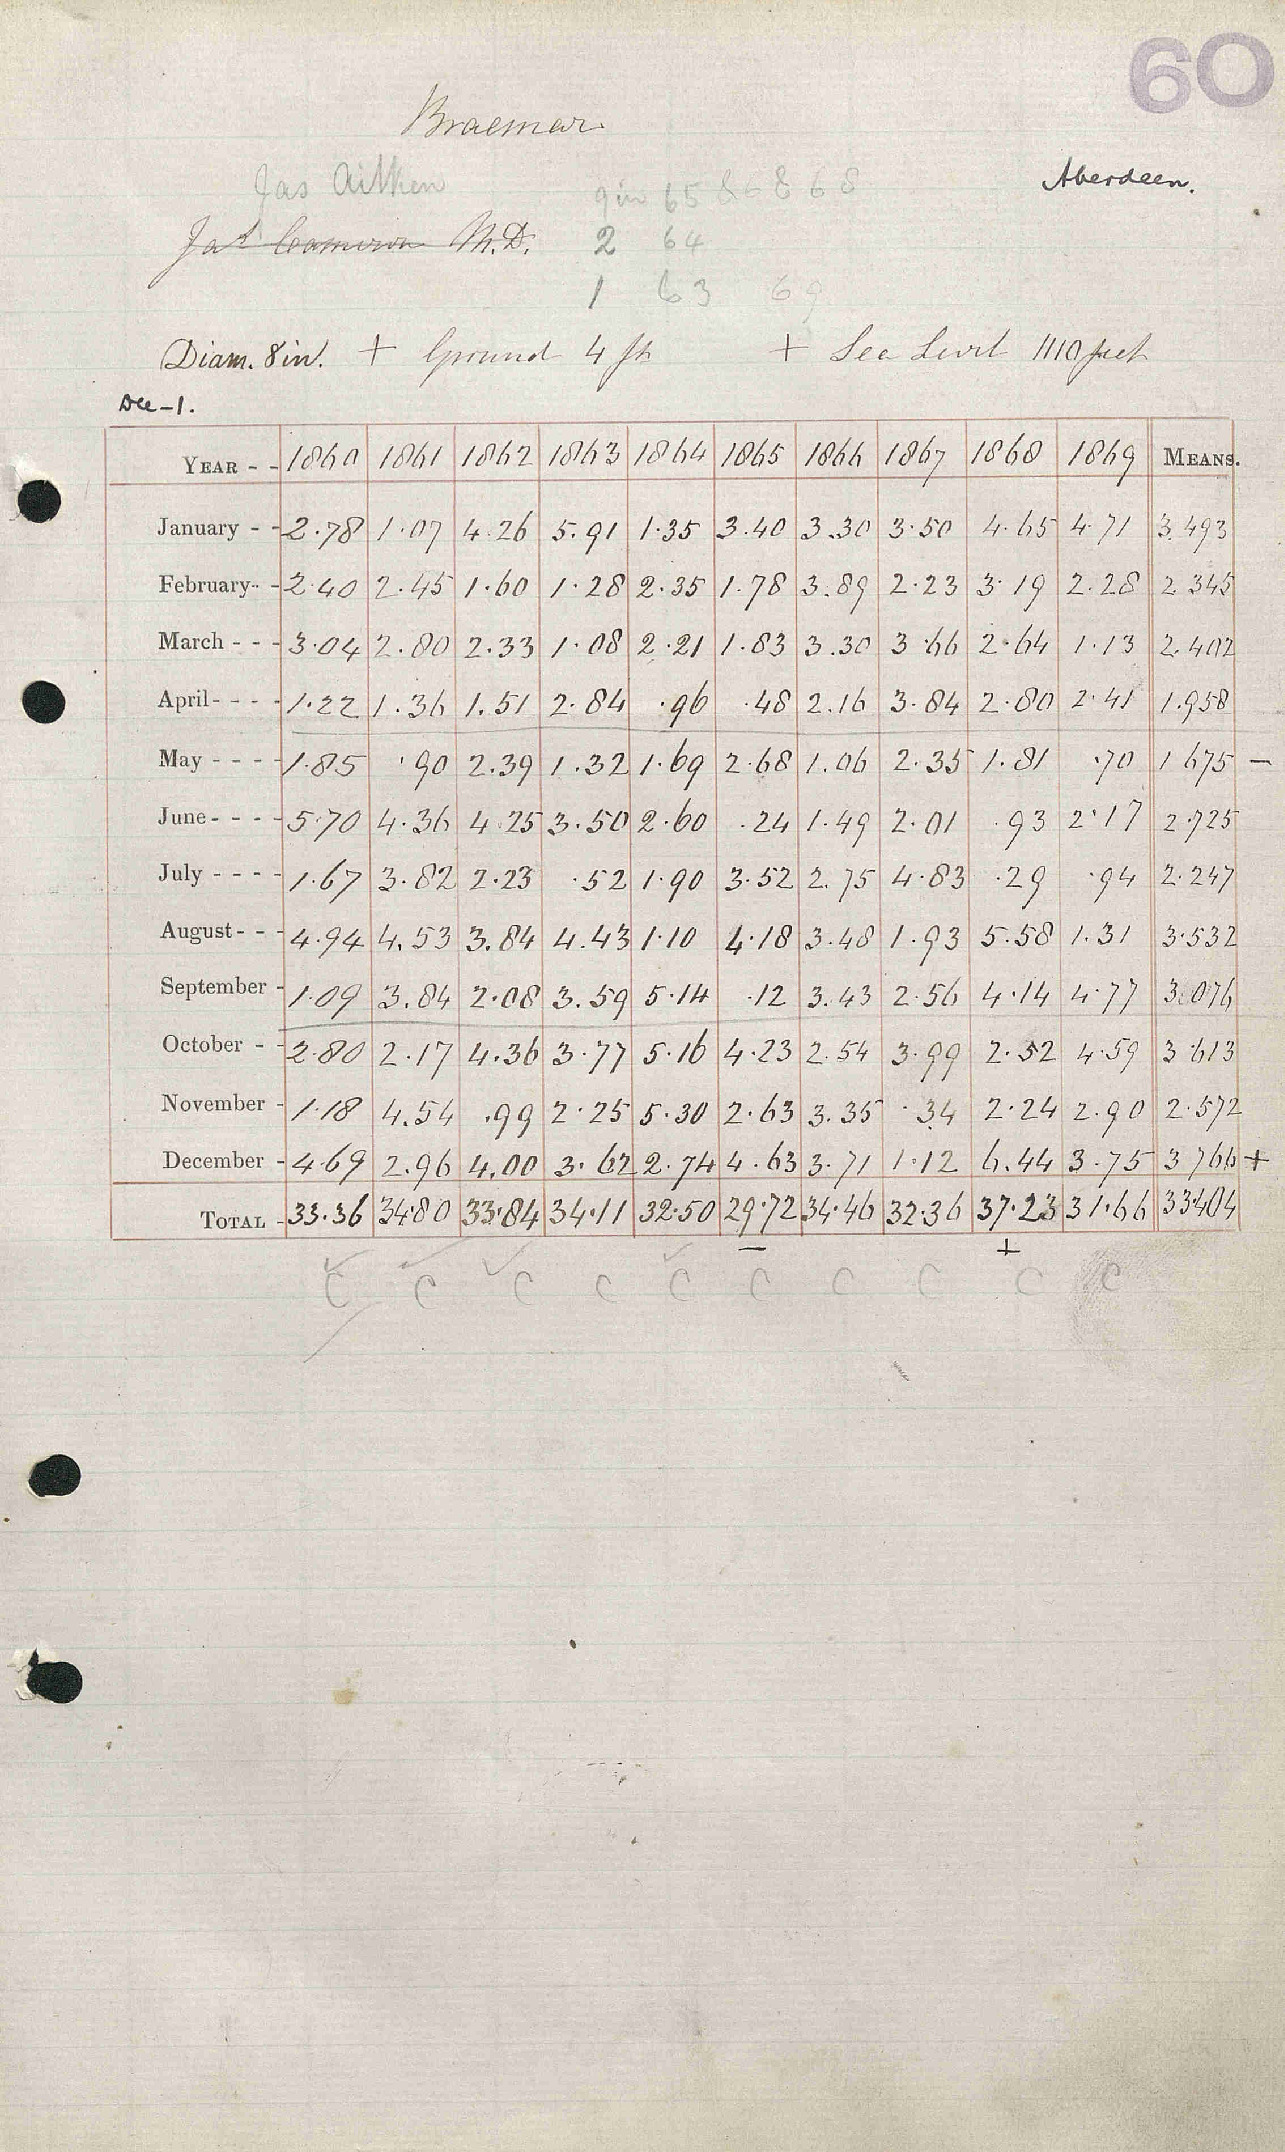 60
Braemar
Jas Aitken
Aberdeen.
Jas Cameron M.D.
2 64
1 63 69
Diam. 8in. + Ground 4 ft + Sea Level 1110 feet
Dec-1.
YEAR - - 1860 1861 1862 1863 1864 1865 1866 1867 1868 1869 MEANS.
January - - 2.78 1.07 4.26 5.91 1.35 3.40 3.30 3.50 4.65 4.71 3.493
February - - 2.40 2.45 1.60 1.28 2.35 1.78 3.89 2.23 3.19 2.28 2.345
March - - - 3.04 2.80 2.33 1.08 2.21 1.83 3.30 3.66 2.64 1.13 2.402
April - - - - 1.22 1.36 1.51 2.84 .96 .48 2.16 3.84 2.80 2.41 1.958
May - - - - 1.85 .90 2.39 1.32 1.69 2.68 1.06 2.35 1.81 .70 1 675 -
June - - - - 5.70 4.36 4.25 3.50 2.60 .24 1.49 2.01 .93 2.17 2.725
July - - - - 1.67 3.82 2.23 .52 1.90 3.52 2.75 4.83 .29 .94 2.247
August - - - 4.94 4.53 3.84 4.43 1.10 4.18 3.48 1.93 5.58 1.31 3.532
September - 1.09 3.84 2.08 3.59 5.14 .12 3.43 2.56 4.14 4.77 3.076
October - - 2.80 2.17 4.36 3.77 5.16 4.23 2.54 3.99 2.52 4.59 3.613
November - 1.18 4.54 .99 2.25 5.30 2.63 3.35 .34 2.24 2.90 2.572
December - 4.69 2.96 4.00 3.62 2.74 4.63 3.71 1.12 6.44 3.75 3 766 +
TOTAL - 33.36 34.80 33.84 34.11 32.50 29.72 34.46 32.36 37.23 31.66 33.404
- +
C C C C C C C C C C